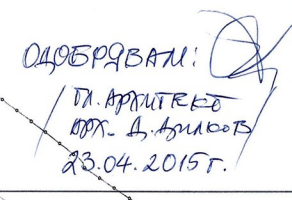 ОДОБРЯВАМ:
/ГЛ. АРХИТЕКТ
АРХ. Д. ДИЛКОВ/
23.04.2015г.